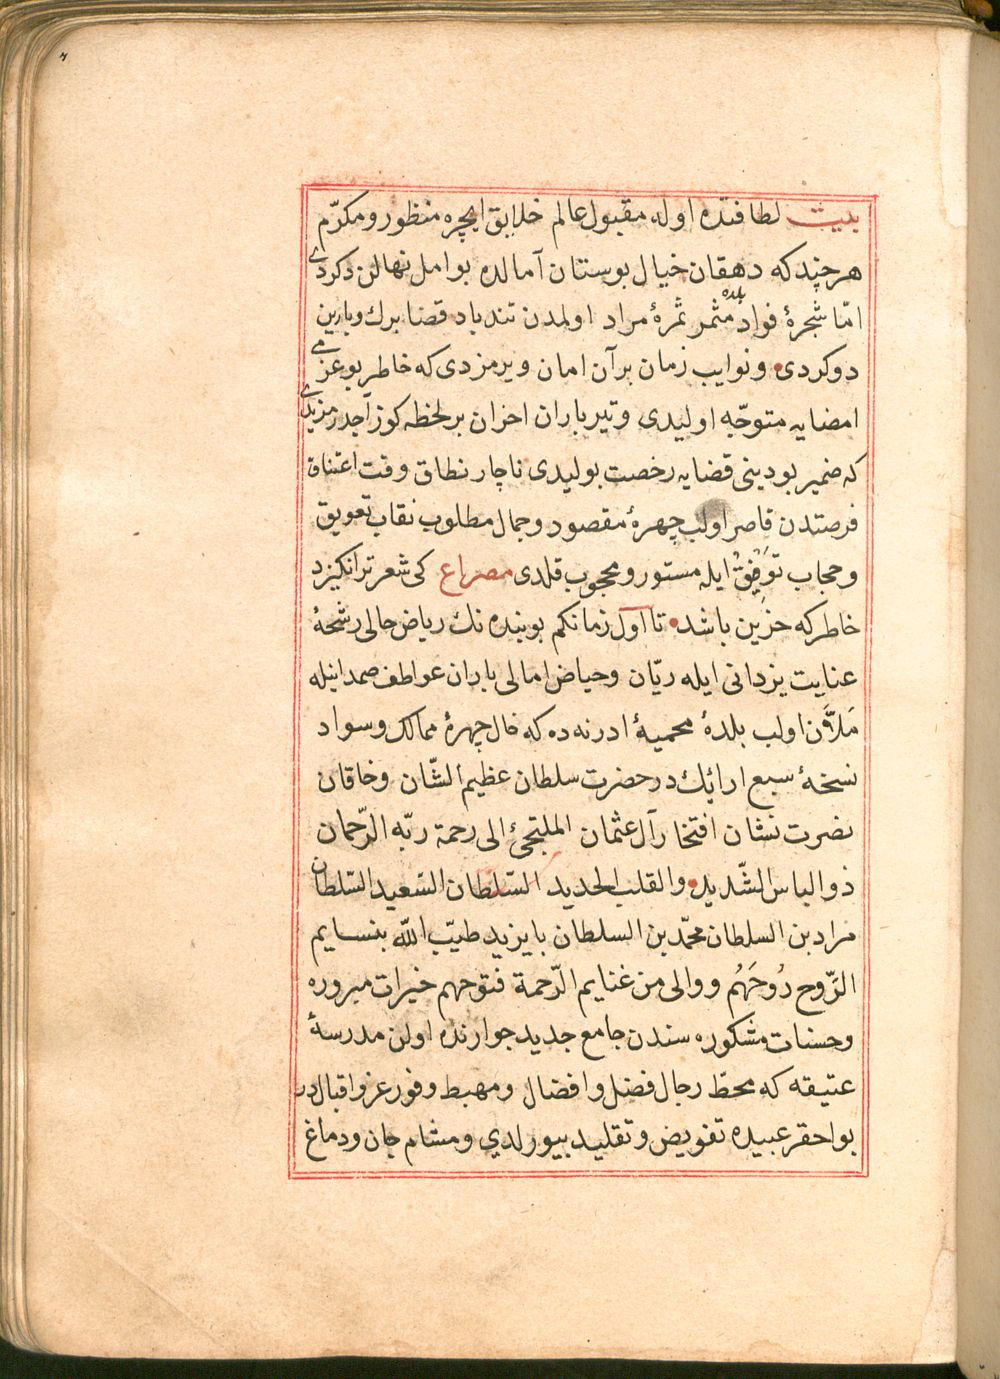 بیت لطافتده اوله مقبول عالم خلایق ایچره منظور و مکرّم
هر چند که دهقان خیال بوستان آمالده بو امل نهالن دکردی
امّا شجرهٔ فواد بلده مثمر ثمرهٔ مراد اولمدن تندباد قضا برك و بارین
دوکردی و نوایب زمان بر آن امان ویرمزدی که خاطر بو عزمی
امضایه متوجّه اولیدی و تیرباران احزان بر لحظه کوز آچدرمزیدی
که ضمیر بو دینی قضایه رخصت بولیدی ناچار نطاق وقت اعتناق
فرصتدن قاصر اولب چهرهٔ مقصود و جمال مطلوب نقاب تعویق
و حجاب ایله مستور و محجوب قلدی مصراع کی شعر تر انکیزد
خاطر که حزین باشد تا اول زمانکم بو بنده نك ریاض حالی رشحهٔ
عنایت یزدانی ایله ریّان و حیاض امالی باران عواطف صمدانیله
مَلاَٰن اولب بلدهٔ محمیهٔ ادرنه ده که خال چهرهٔ ممالک و سواد
نسخهٔ سبع ارائك در حضرت سلطان عظیم الشّان و خاقان
نصرت نشان افتخار آل عثمان الملتجئ الی رحمة ربّه الرّحمان
ذو الباس الشّدید والقلب الحدید السّلطان السّعید السّلطان
مراد بن السلطان محمّد بن السلطان بایزید طیّب اللّه بنسایم
الرَّوح رُوحَهُم و والی من غنایم الرّحمة فتوحهم خیرات مبروره
و حسنات مشکوره سندن جامع جدید جوارنده اولن مدرسهٔ
عتیقه که محطّ رجال فضل و افضال و مهبط وفور عز و اقبال در
بو احقر عبیده تفویض و تقلید بیورلدي و مشام جان و دماغ